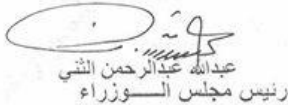 عبدالله عبدالرحمن الثني
رئيس مجلس الـــوزراء